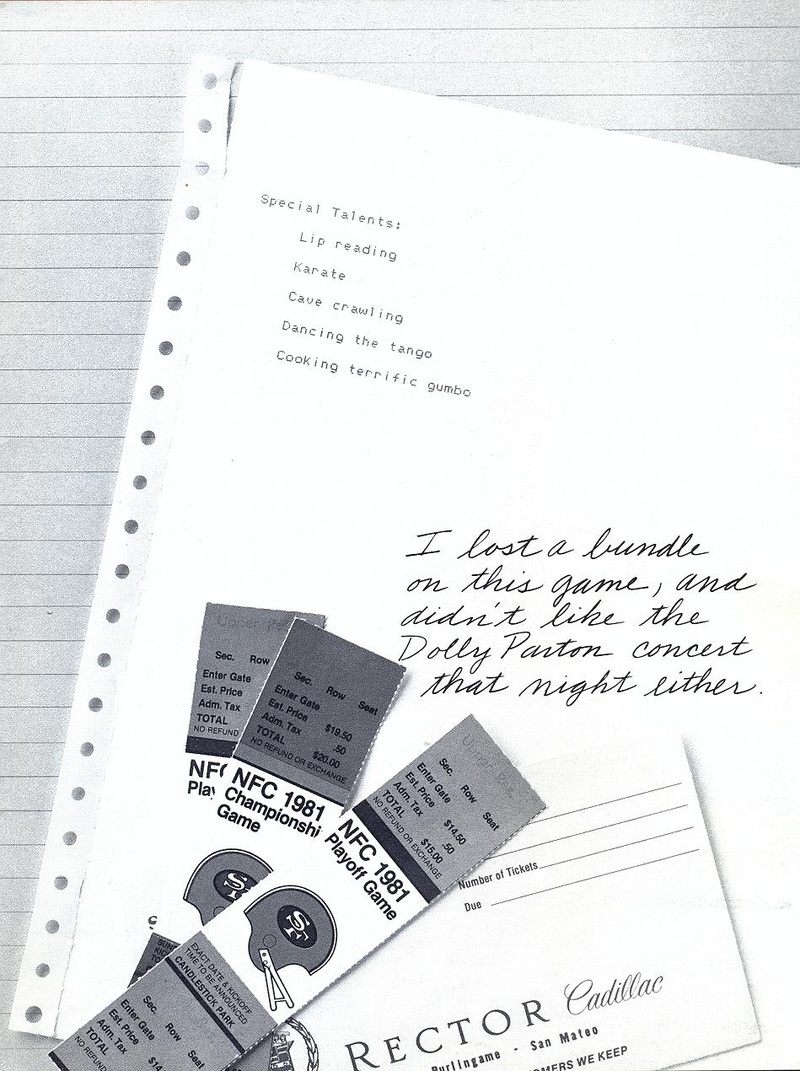 Special Talents:
Lip reading
Karate
Cave crawling
Dancing the tango
Cooking terrific gumbo
I lost a bundle
on this game, and
didn't like the
Dolly Parton concert
that night either.
Sec. Row
Enter Gate
Est. Price
Adm. Tax
TOTAL
NO REFUND
NFC
Play
Sec. Row Seat
Enter Gate
Est. Price $19.50
Adm. Tax .50
TOTAL $20.00
NO REFUND OR EXCHANGE
NFC 1981
Championshi
Game
Upper
Sec. Row Seat
Enter Gate
Est. Price $14.50
Adm. Tax .50
TOTAL $15.00
NO REFUND OR EXCHANGE
NFC 1981
Playoff Game
SF
SF
EXACT DATE & KICKOFF
TIME TO BE ANNOUNCED
CANDLESTICK PARK
Sec. Row Seat
Enter Gate
Est. Price
Adm. Tax
TOTAL $14
NO REFUND
Number of Tickets
Due
RECTOR Cadillac
Burlingame - San Mateo
OMERS WE KEEP